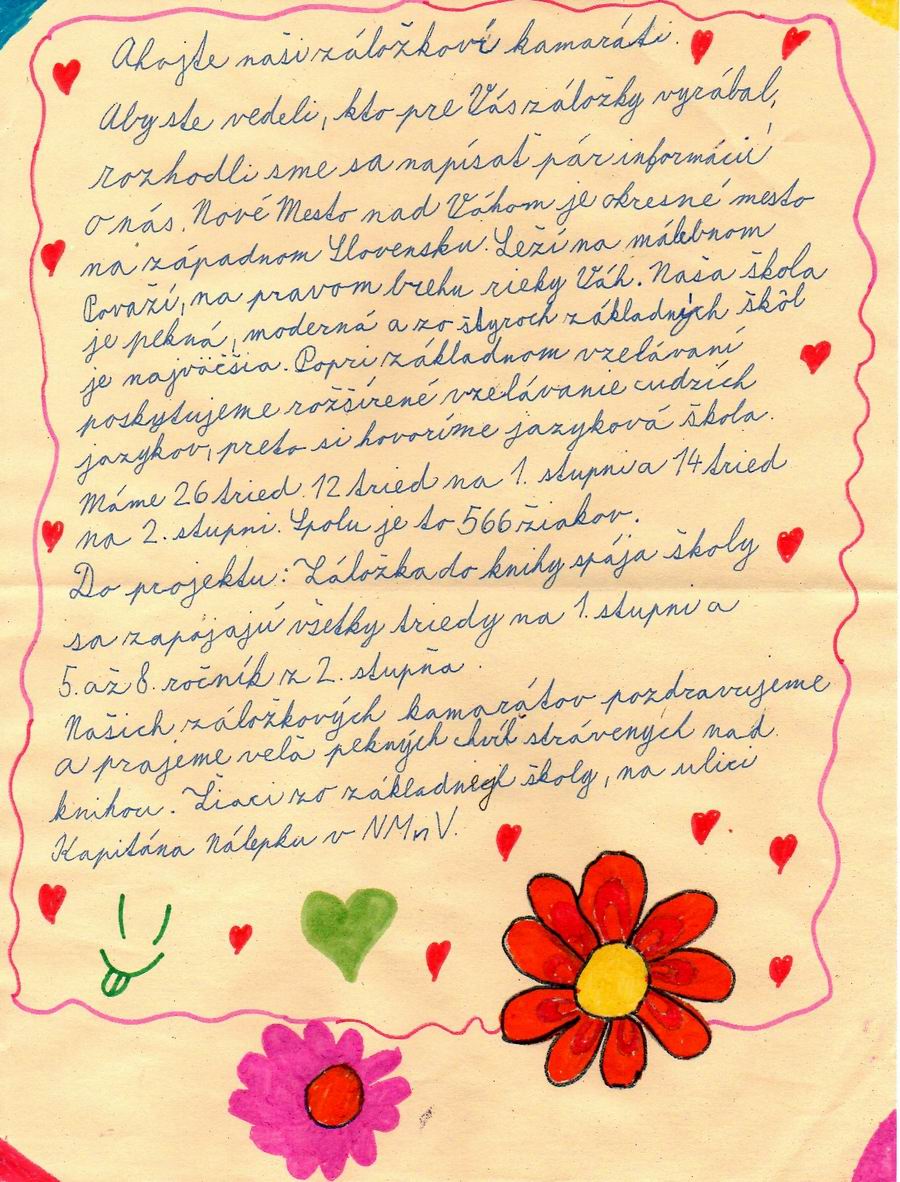 Ahojte naši záložkoví kamaráti.
Aby ste vedeli, kto pre Vás záložky vyrábal,
rozhodli sme sa napísať pár informácií
o nás. Nové Mesto nad Váhom je okresné mesto
na západnom Slovensku. Leží na málebnom
Považí, na pravom brehu rieky Váh. Naša škola
je pekná, moderná a zo štyroch základných škôl
je najväčšia. Popri základnom vzelávaní
poskytujeme rožšírené vzelávanie cudzích
jazykov, preto si hovoríme jazyková škola.
Máme 26 tried. 12 tried na 1. stupni a 14 tried
na 2. stupni. Spolu je to 566 žiakov.
Do projektu: Záložka do knihy spája školy
sa zapájajú všetky triedy na 1. stupni a
5. až 8. ročník z 2. stupňa.
Našich záložkových kamarátov pozdravujeme
a prajeme veľa pekných chvíľ strávených nad
knihou. Žiaci zo základnej školy, na ulici
Kapitána Nálepku v NMnV.